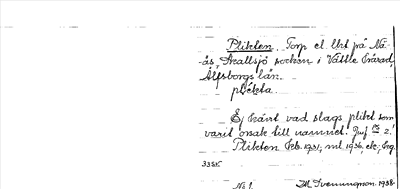 Plikten. Torp el. lht på Nä-
ås, Skallsjö socken i Vättle härad,
Älfsborgs län.
plékta
Ej känt vad slags plikt som
varit orsak till namnet. Jmf 2!
Plikten Feb. 1931, ml 1936, ek; Eg.
33sr.
No 1. M. Svenungson. 1938.